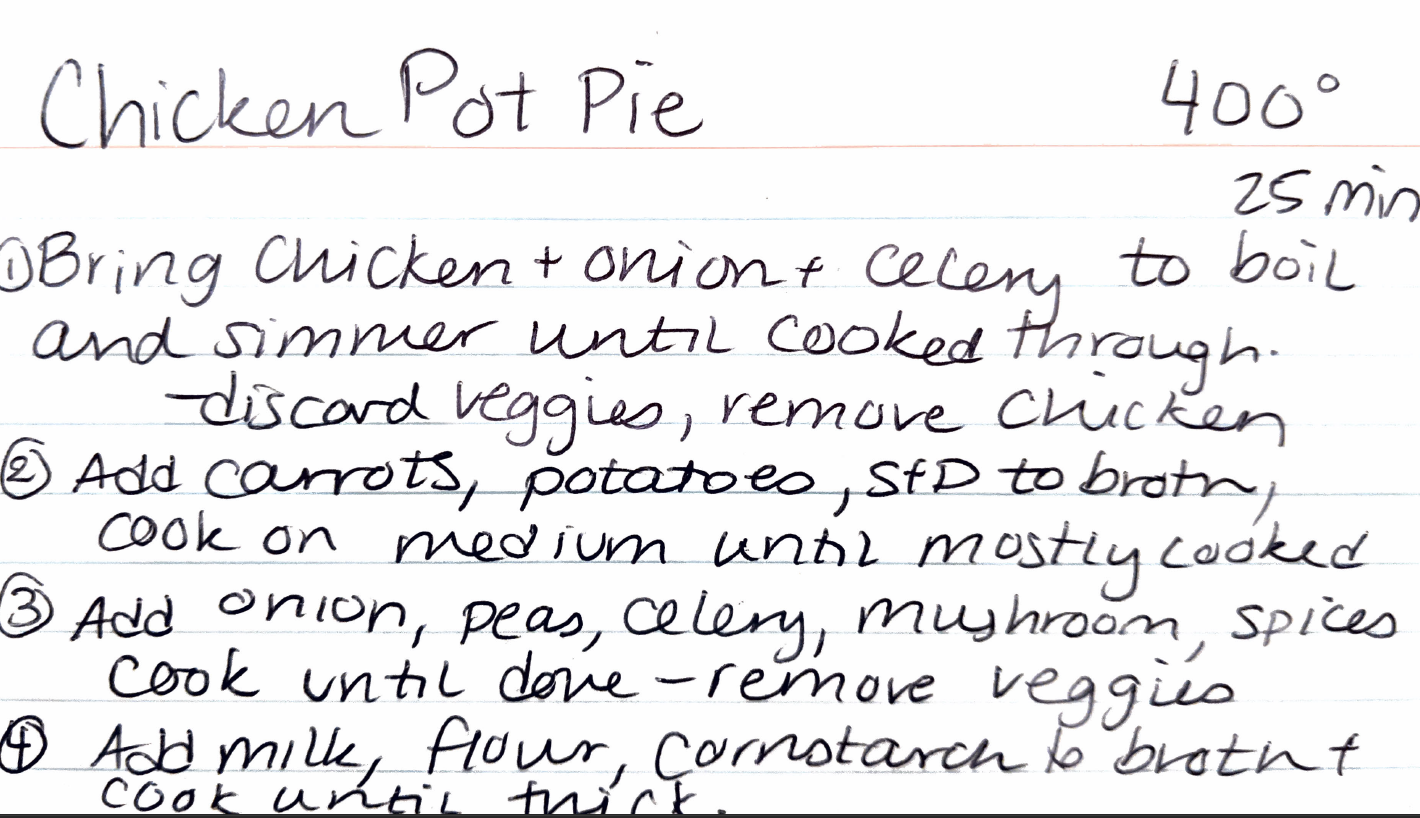 Chicken Pot Pie 400°
25 min
① Bring Chicken + onion + celery to boil
and simmer until cooked through.
- discard veggies, remove chicken
② Add carrots, potatoes, S+P to broth,
cook on medium until mostly cooked
③ Add onion, peas, celery, mushroom, spices
cook until done - remove veggies
④ Add milk, flour, cornstarch to broth +
cook until thick.